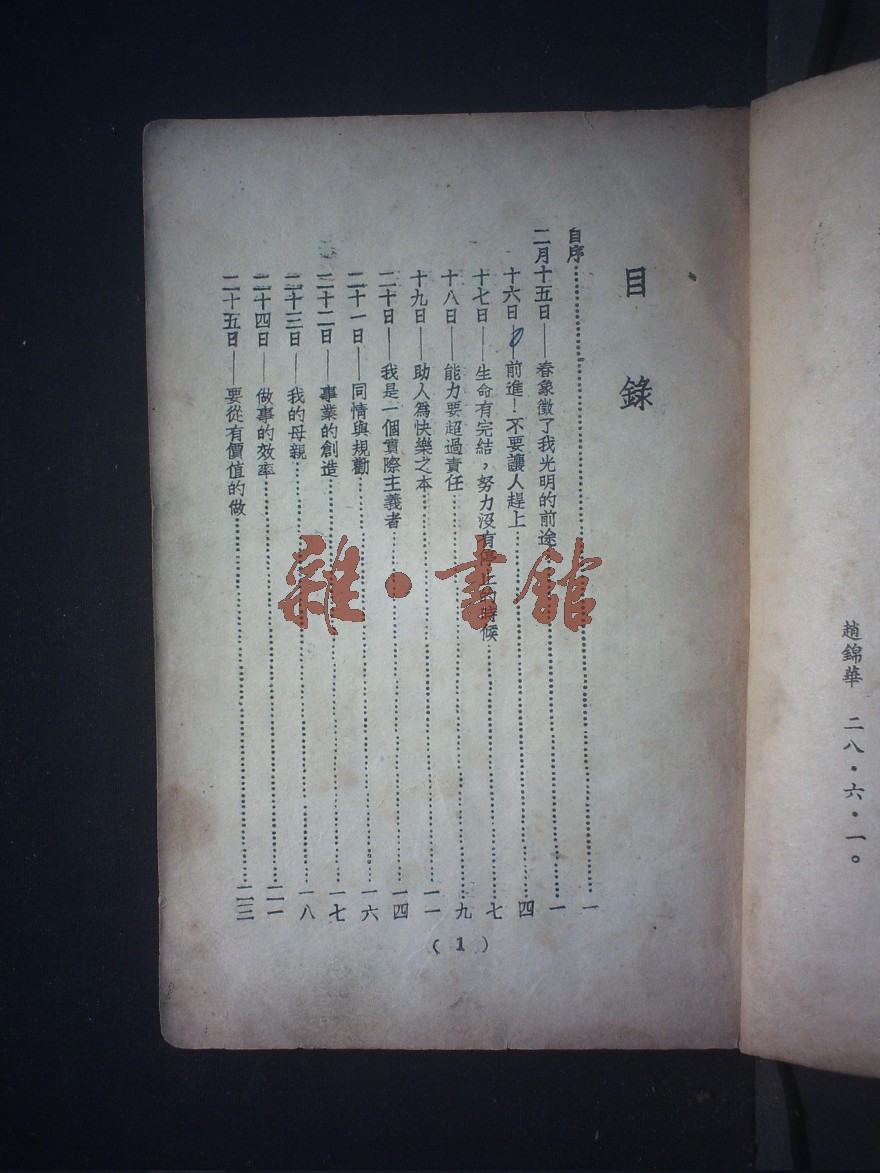 趙錦華　二八・六・一。
目錄
自序……一
二月十五日——春象徵了我光明的前途……一
十六日——前進！不要讓人趕上……四
十七日——生命有完結，努力沒有停止的時候……七
十八日——能力要超過責任……九
十九日——助人為快樂之本……一一
二十日——我是一個實際主義者……一四
二十一日——同情與規勸……一六
二十二日——事業的創造……一七
二十三日——我的母親……一八
二十四日——做事的效率……二一
二十五日——要從有價值的做……二三
(1)
雜・書館